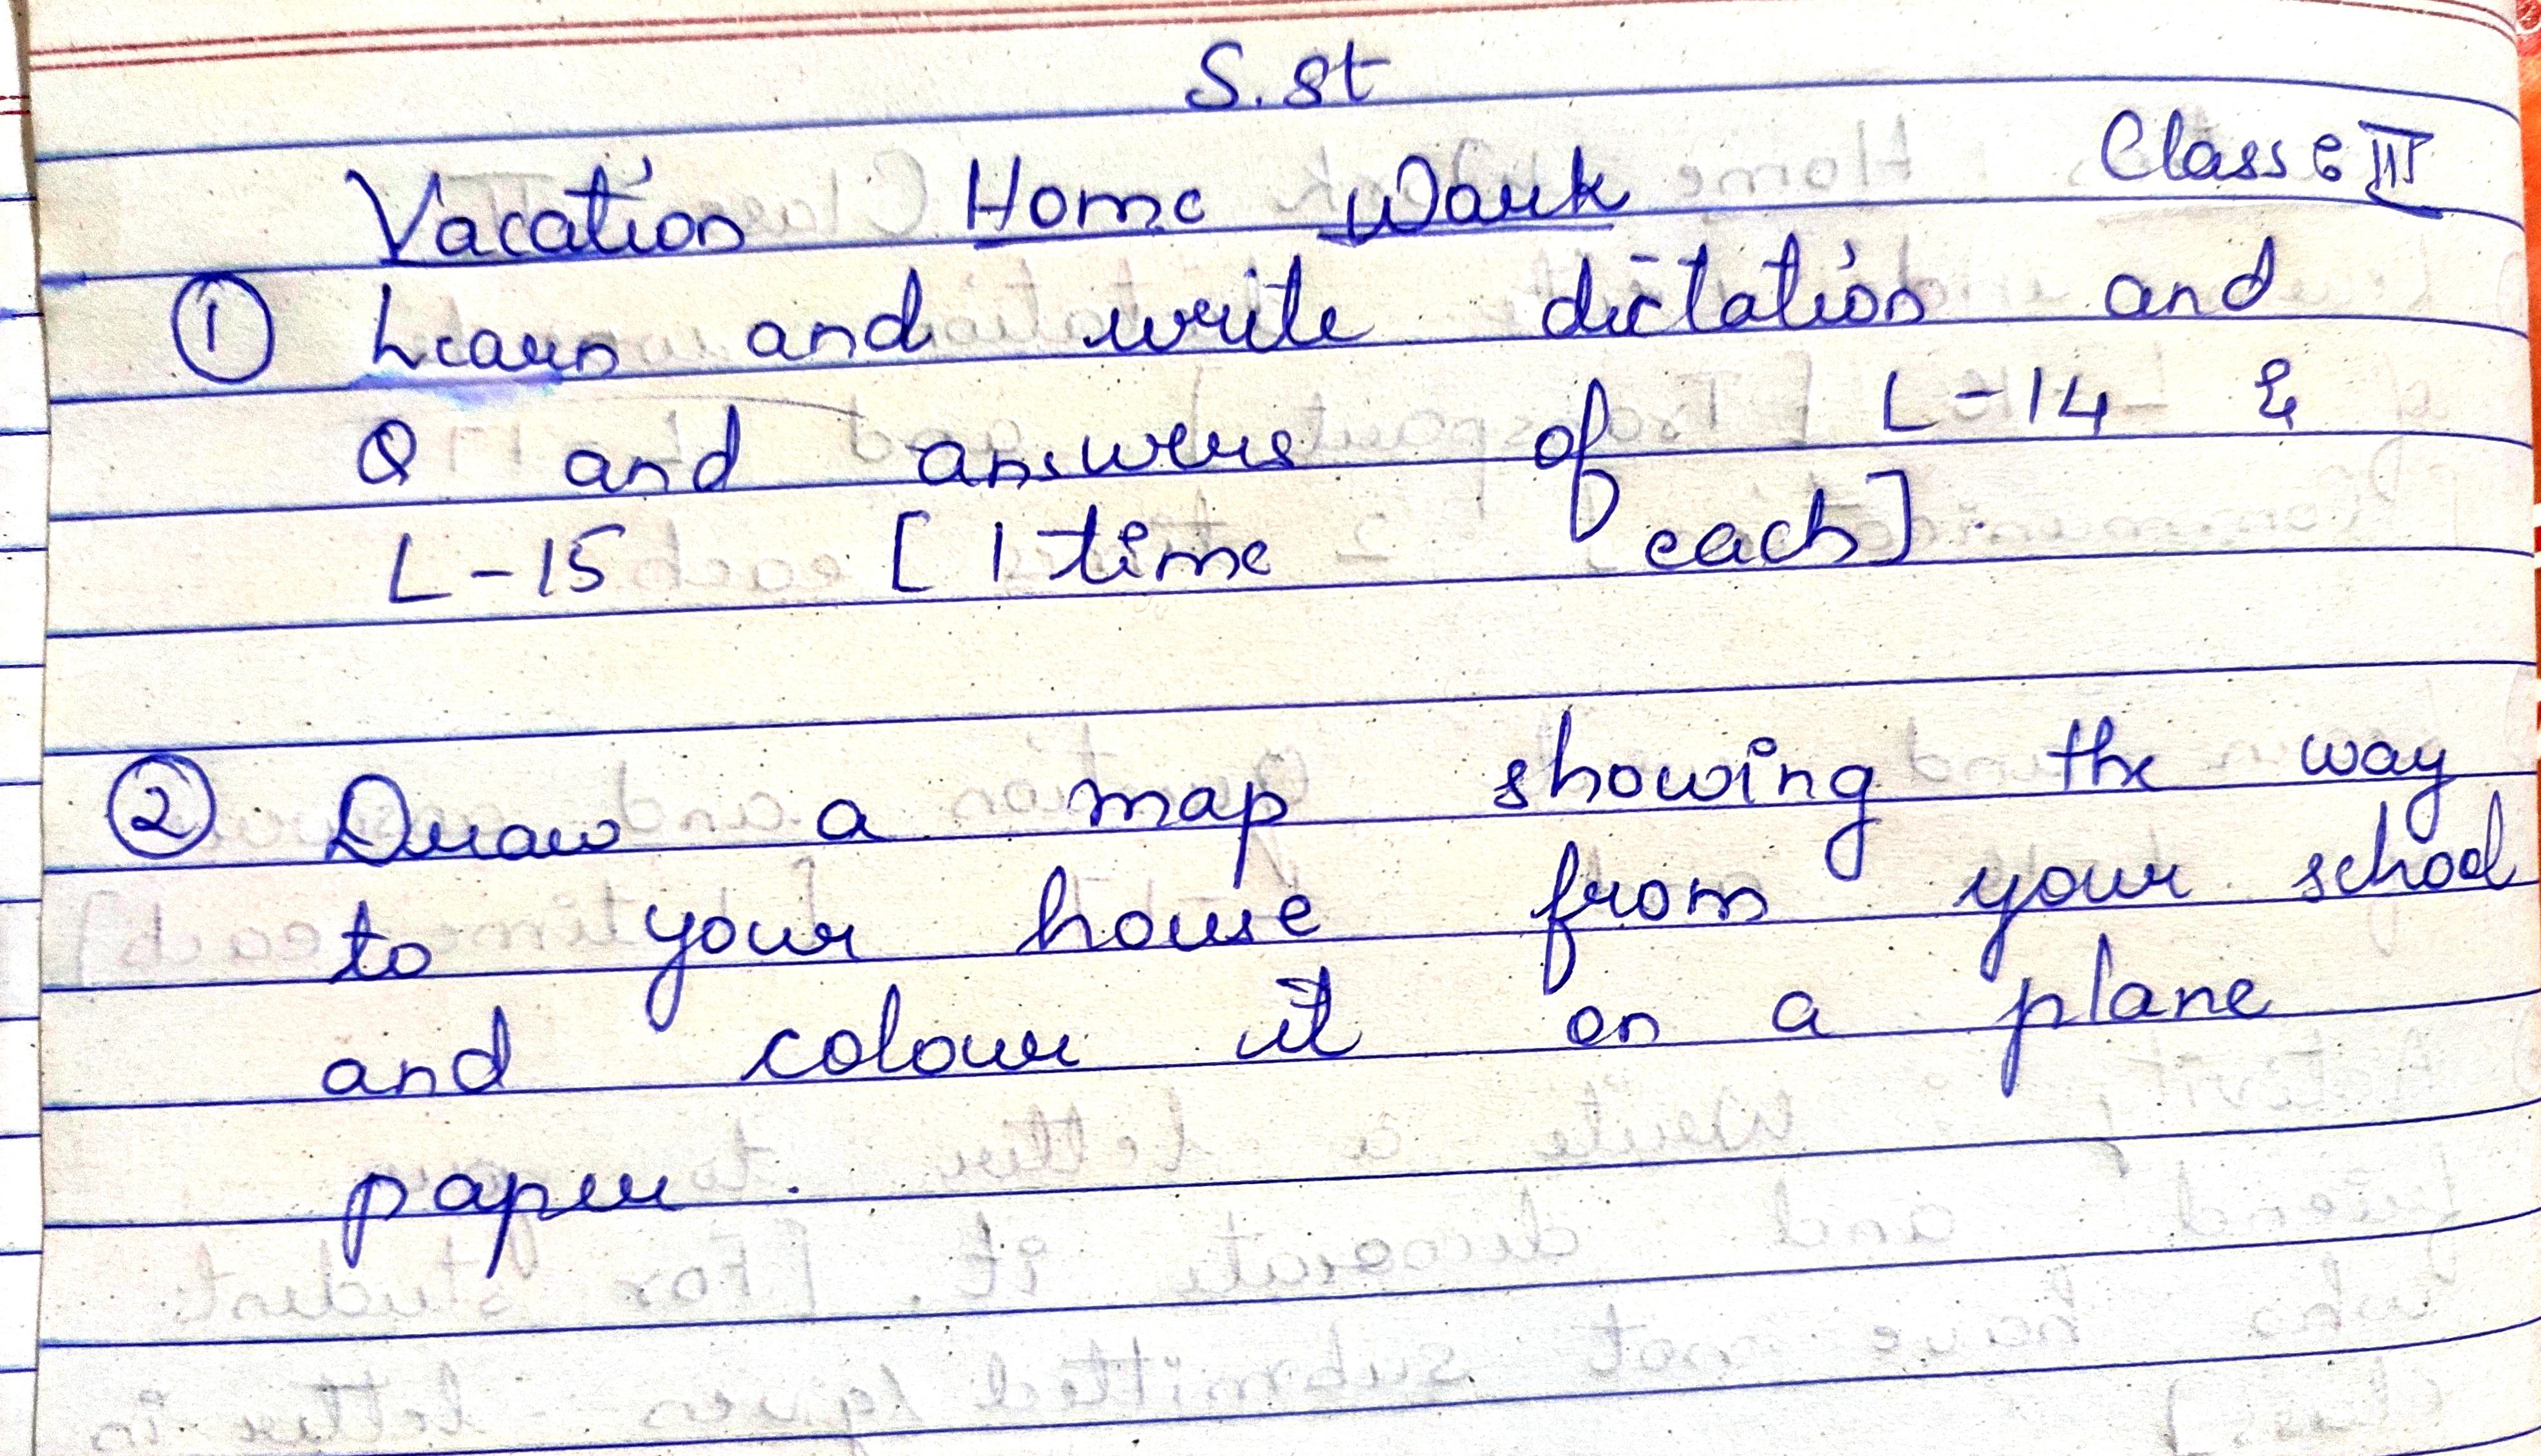 S.st
Class : III
Vacation Home Work
① Learn and write dictation and
Q and answers of L-14 &
L-15 [1 time each].
② Draw a map showing the way
to your house from your school
and colour it on a plane
paper.